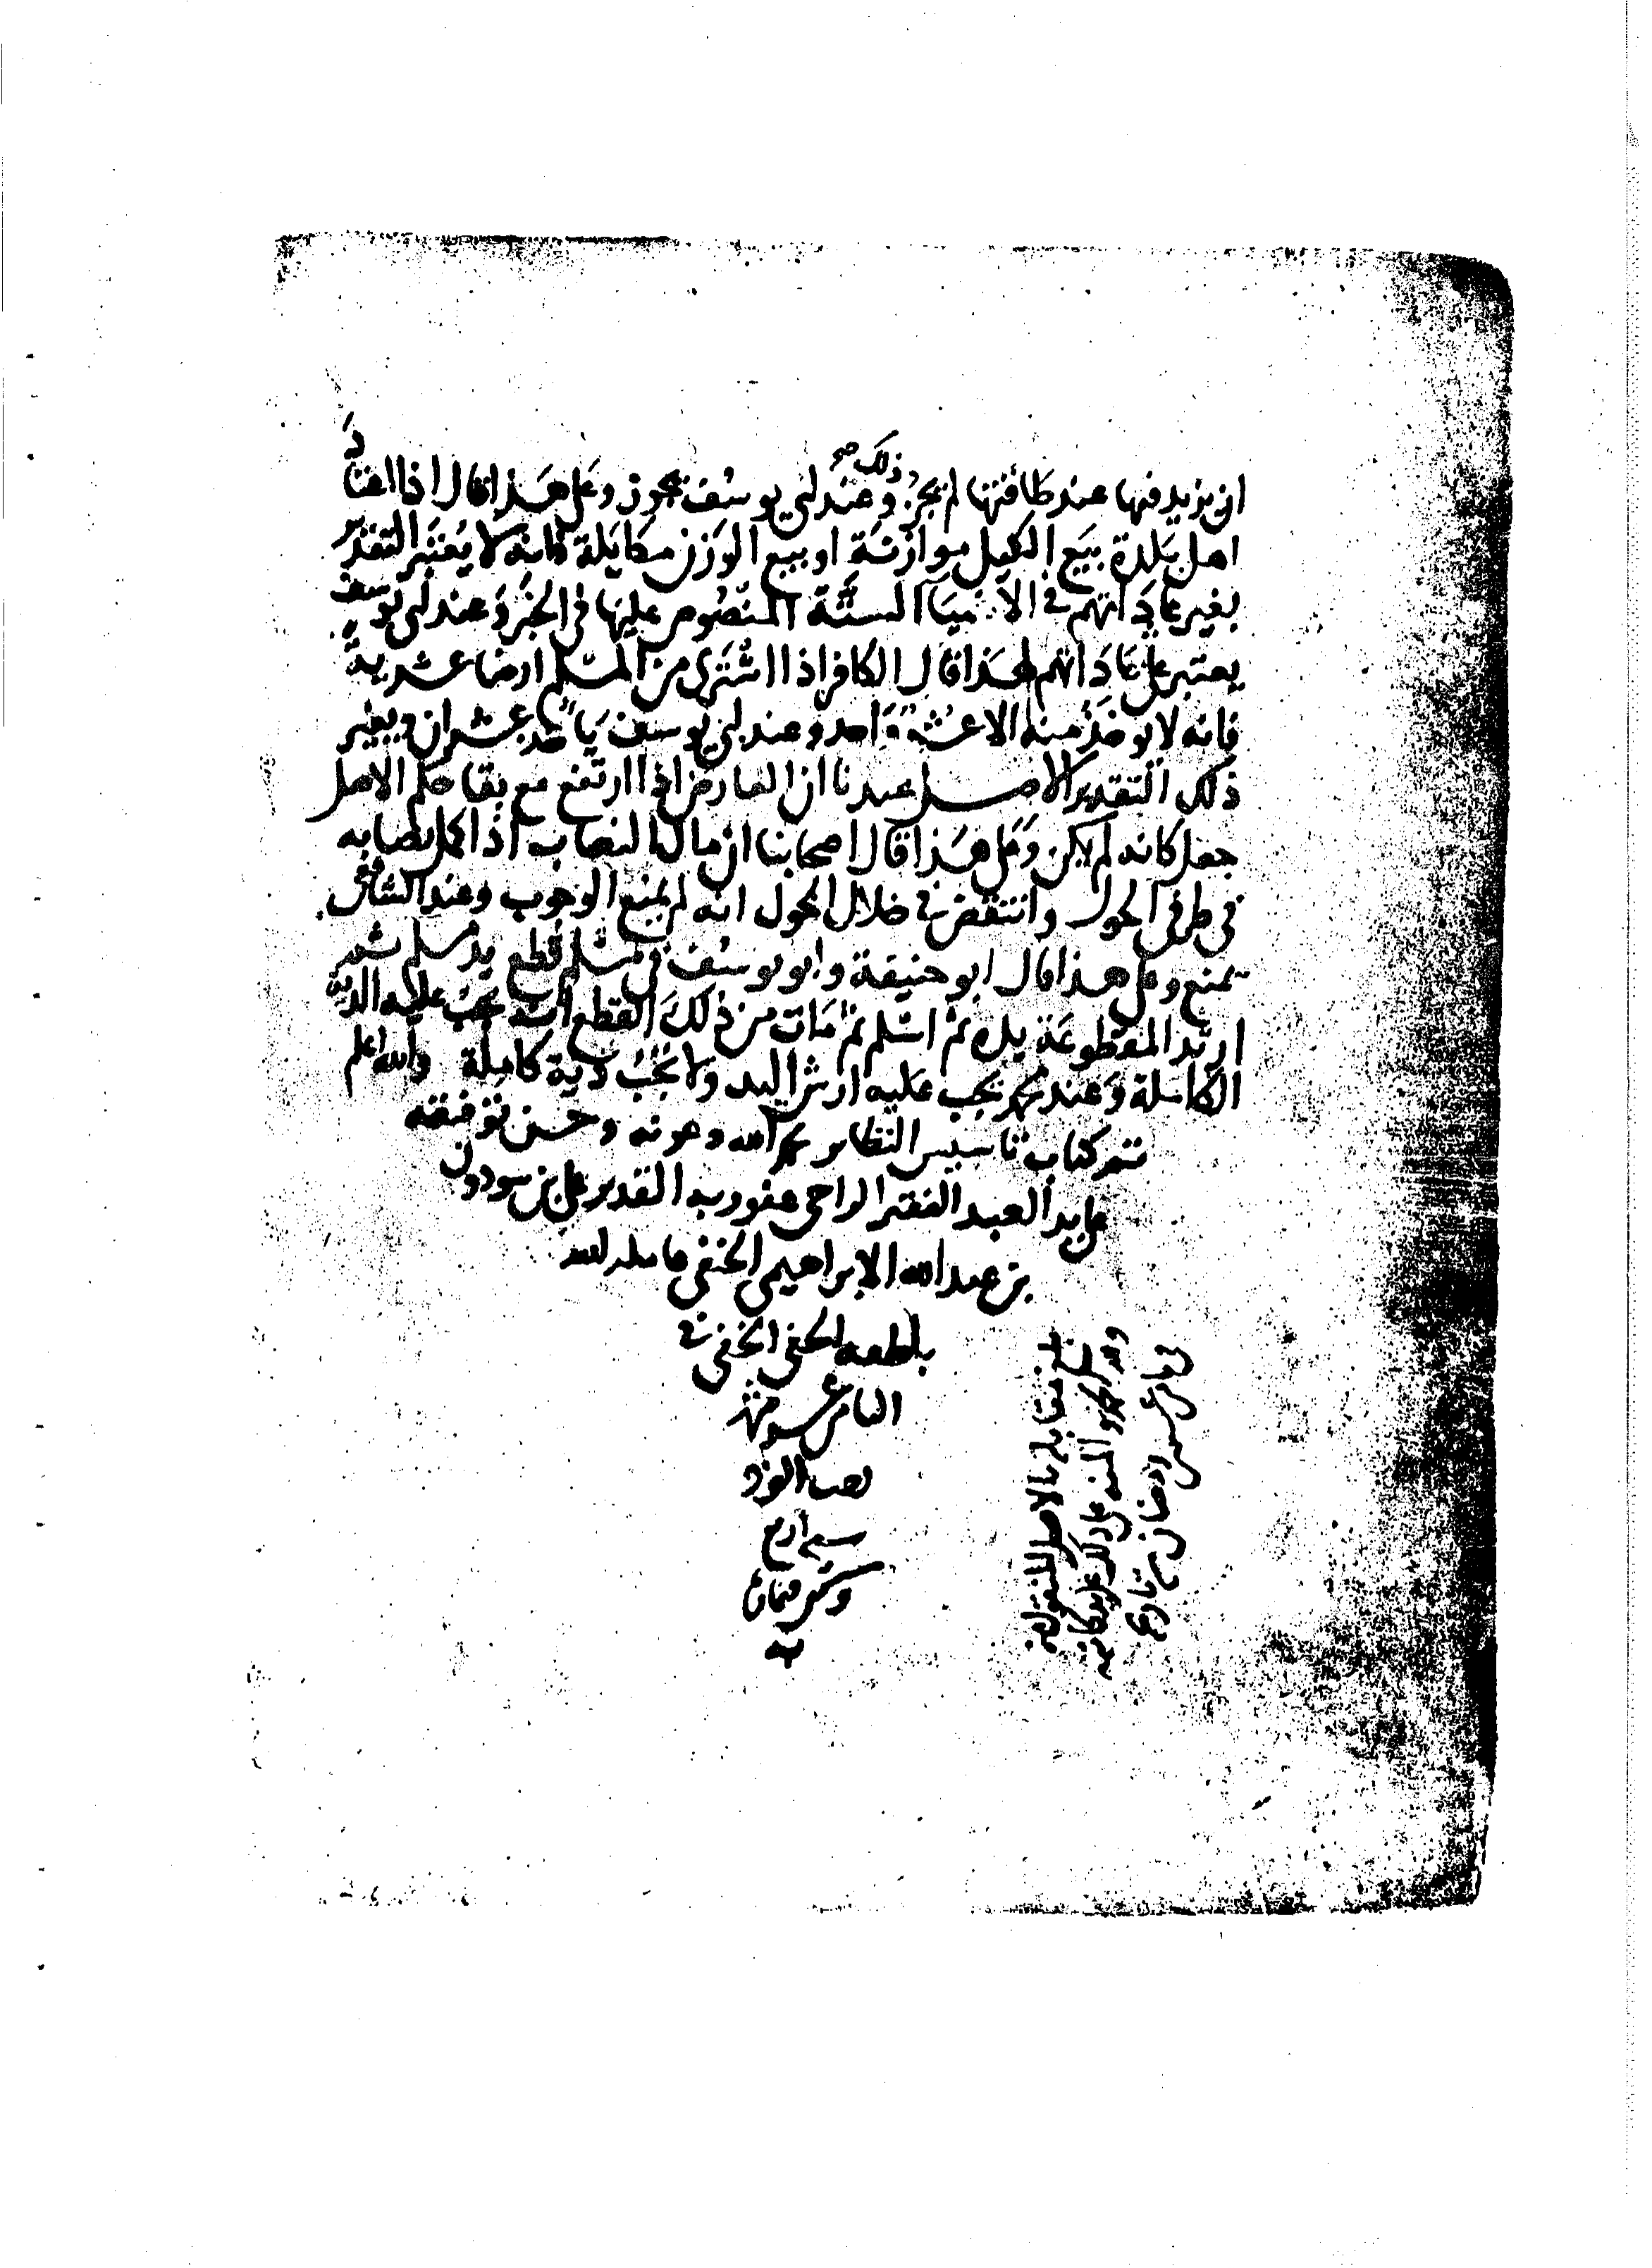 ان يزيد فيها عند طاقتها لم يجز ذلك صح وعند ابي يوسف يجوز وعلى هذا قال اذا اعتاد
اهل بلدة بيع الكيل موازنة او بيع الوزن مكايلة فانه لا يعتبر التقدير
بغير عاداتهم في الاشيا الستة المنصوص عليها في الخبر وعند ابي يوسف
يعتبر على عاداتهم لهذا قال الكافر اذا اشترى من المسلم ارضا عشرية
فانه لا يوخذ منه الا عشر واحد وعند ابي يوسف ياخذ عشران ويغير
ذلك التقدير الاصل عندنا ان العارض اذا ارتفع مع بقا حكم الاصل
جعل كانه لم يكن وعلى هذا قال اصحابنا ان مال النصاب اذا كمل نصابه
في طرفي الحول وانتقض في خلال الحول انه لم يمنع الوجوب وعند الشافعي
يمنع وعلى هذا قال ابو حنيفة وابو يوسف في مسلم قطع يد مسلم ثم
ارتد المقطوعة يده ثم اسلم ثم مات من ذلك القطع انه يجب عليه الدية
الكاملة وعند محمد يجب عليه ارش اليد ولا يجب دية كاملة والله اعلم
تم كتاب تاسيس النظاير بحمد الله وعونه وحسن توفيقه
على يد العبد الفقير الراجي عفو ربه القدير علي بن سودون
بن عبد الله الابراهيمي الحنفي عامله الله
بلطفه الخفي الحنفي في
الثامن عشر من شهر
سنه اربع
وثمان
به
بلغ مقابلة بالاصل المنقول منه
ولله الحمد والمنه على ذلك كاتبه
في ثامن عشر رمضان تاريخه